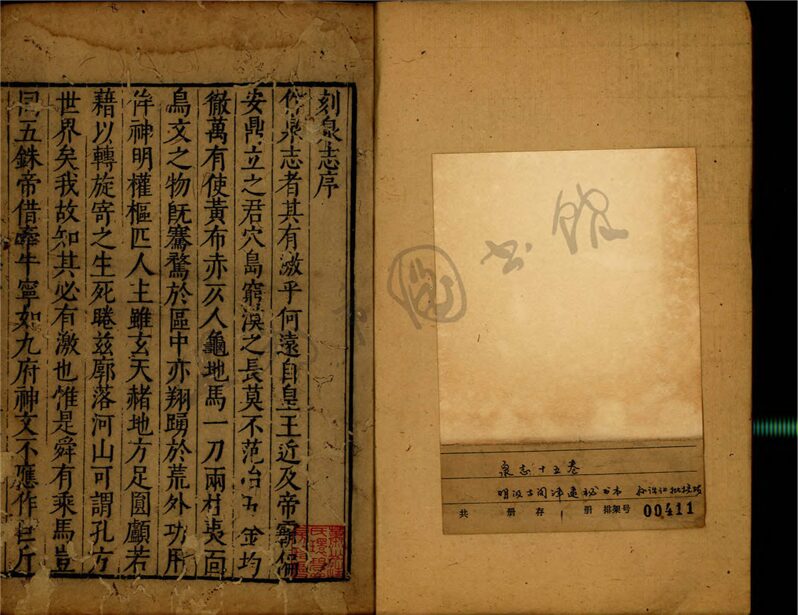 刻泉志序
作泉志者其有激乎何遠自皇王近及帝霸偏
安鼎立之君穴島窮漠之長莫不范冶五金均
徹萬有使黃布赤仄人龜地馬一刀兩柱夷面
鳥文之物旣騫騖於區中亦翔踴於荒外功用
侔神明權樞匹人主雖玄天赭地方足圓顱若
藉以轉旋寄之生死睠茲廓落河山可謂孔方
世界矣我故知其必有激也惟是舜有乘馬豈
五銖帝借牽牛寧如九府神文不應作
图书馆
泉志十五卷
明汲古阁津逮秘书本
共 册存 1 册 排架号 00411